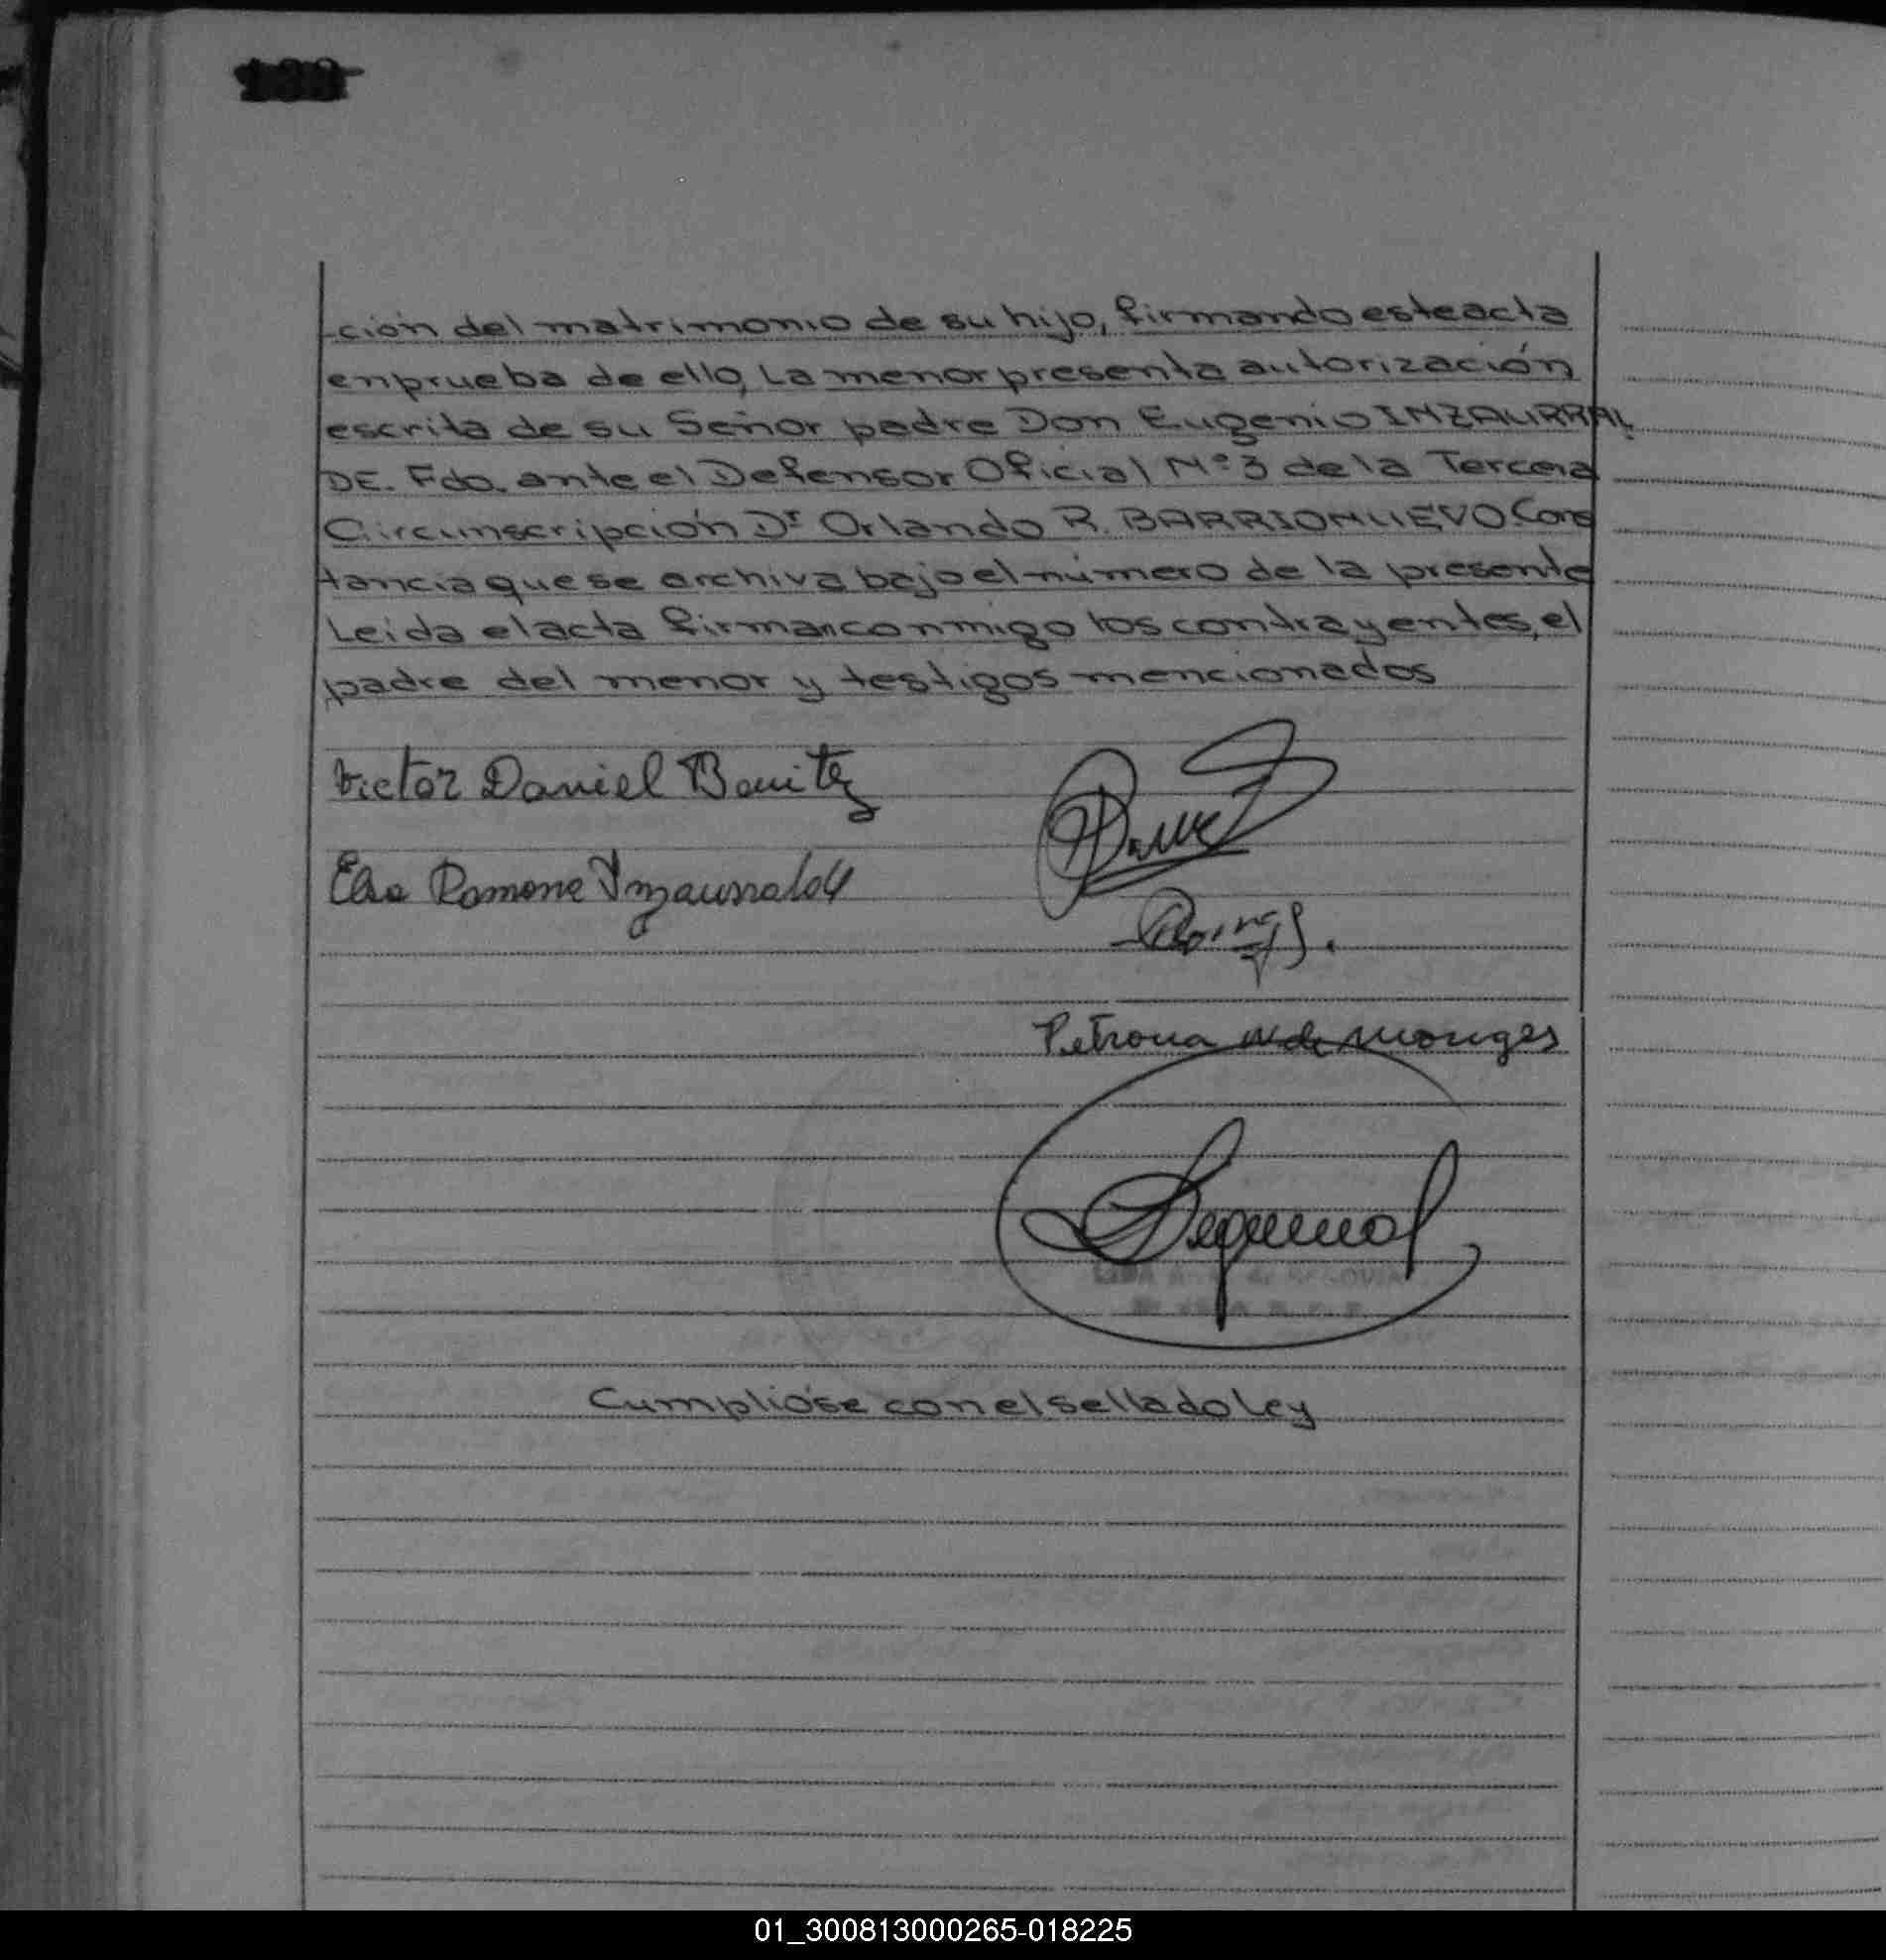 -ción del matrimonio de su hijo, firmando este acta
en prueba de ello, La menor presenta autorización
escrita de su Señor padre Don Eugenio INZAURRAL
DE. Fdo. ante el Defensor Oficial Nº 3 de la Tercera
Circunscripción Dr Orlando R. BARRIONUEVO. Cons
tancia que se archiva bajo el número de la presente
Leida el acta firman conmigo los contrayentes, el
padre del menor y testigos mencionados
Victor Daniel Benitez
Elsa Ramona Inzaurralde
Petrona de Monges
SEGOVIA
Cumplióse con el sellado ley
01_300813000265-018225